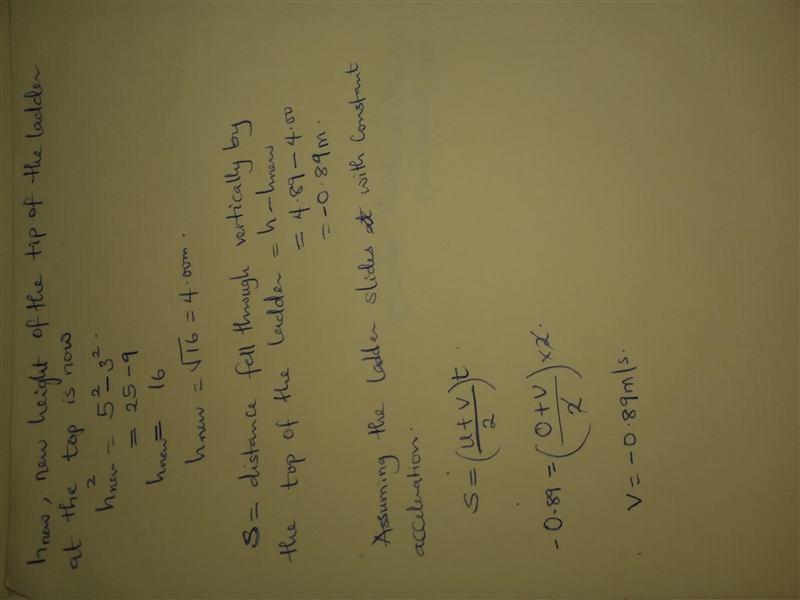 hnew, new height of the tip of the ladder
at the top is now
h²new = 5² - 3².
= 25 - 9
hnew = 16
hnew = √16 = 4.00m.
S = distance fell through vertically by
the top of the ladder = h - hnew
= 4.89 - 4.00
= -0.89m.
Assuming the ladder slides with constant
acceleration.
S = (u+v/2)t.
-0.89 = (0+v/2)×2.
V = -0.89m/s.